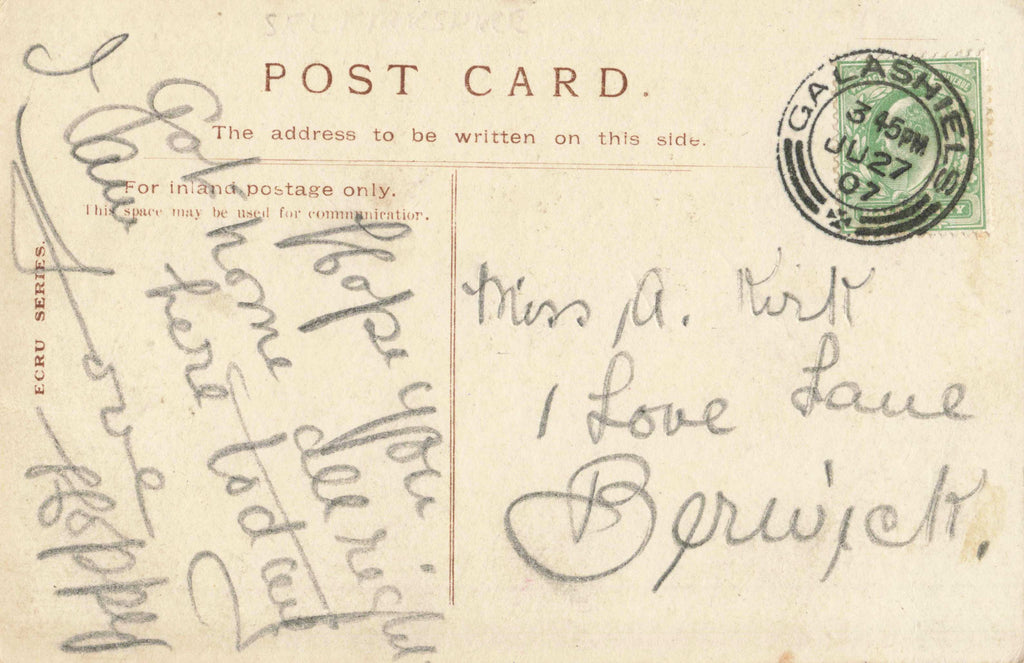 POST CARD.
The address to be written on this side.
For inland postage only.
This space may be used for communication.
ECRU SERIES.
GALASHIELS
3 45PM
JU 27
07
Hope you
all right
Got home
here today
Love
Hoppy
Miss A. Kirk
1 Love Lane
Berwick.